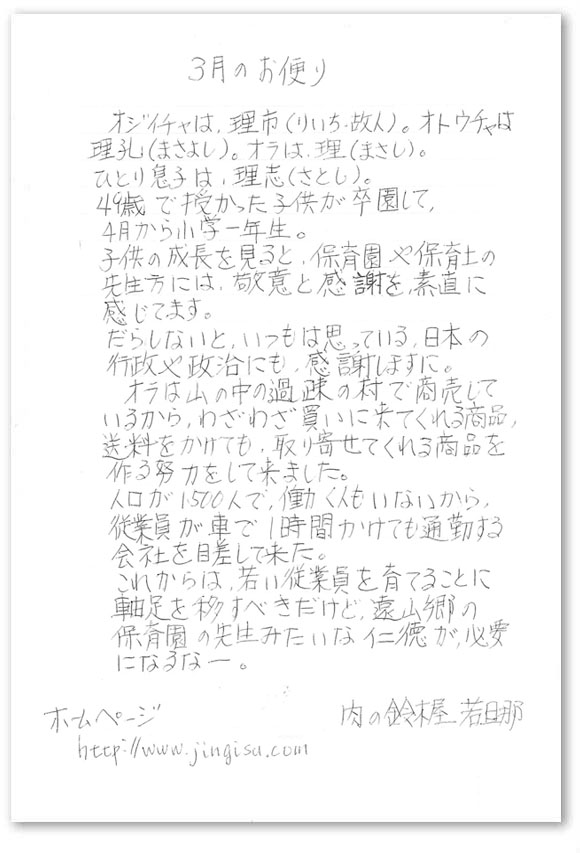 3月のお便り
オジイチャは、理市(りいち・故人)。オトウチャは
理孔(まさよし)。オラは、理(まさし)。
ひとり息子は、理志(さとし)。
49歳で授かった子供が卒園して、
4月から小学一年生。
子供の成長を見ると、保育園や保育士の
先生方には、敬意と感謝を、素直に
感じてます。
だらしないと、いつもは思っている、日本の
行政や政治にも、感謝しますに。
オラは山の中の過疎の村で商売して
いるから、わざわざ買いに来てくれる商品、
送料をかけても、取り寄せてくれる商品を
作る努力をして来ました。
人口が1500人で、働く人もいないから、
従業員が車で1時間かけても通勤する
会社を目差して来た。
これからは、若い従業員を育てることに
軸足を移すべきだけど、遠山郷の
保育園の先生みたいな仁徳が、必要
になるなー。
肉の鈴木屋 若旦那
ホームページ
http://www.jingisu.com